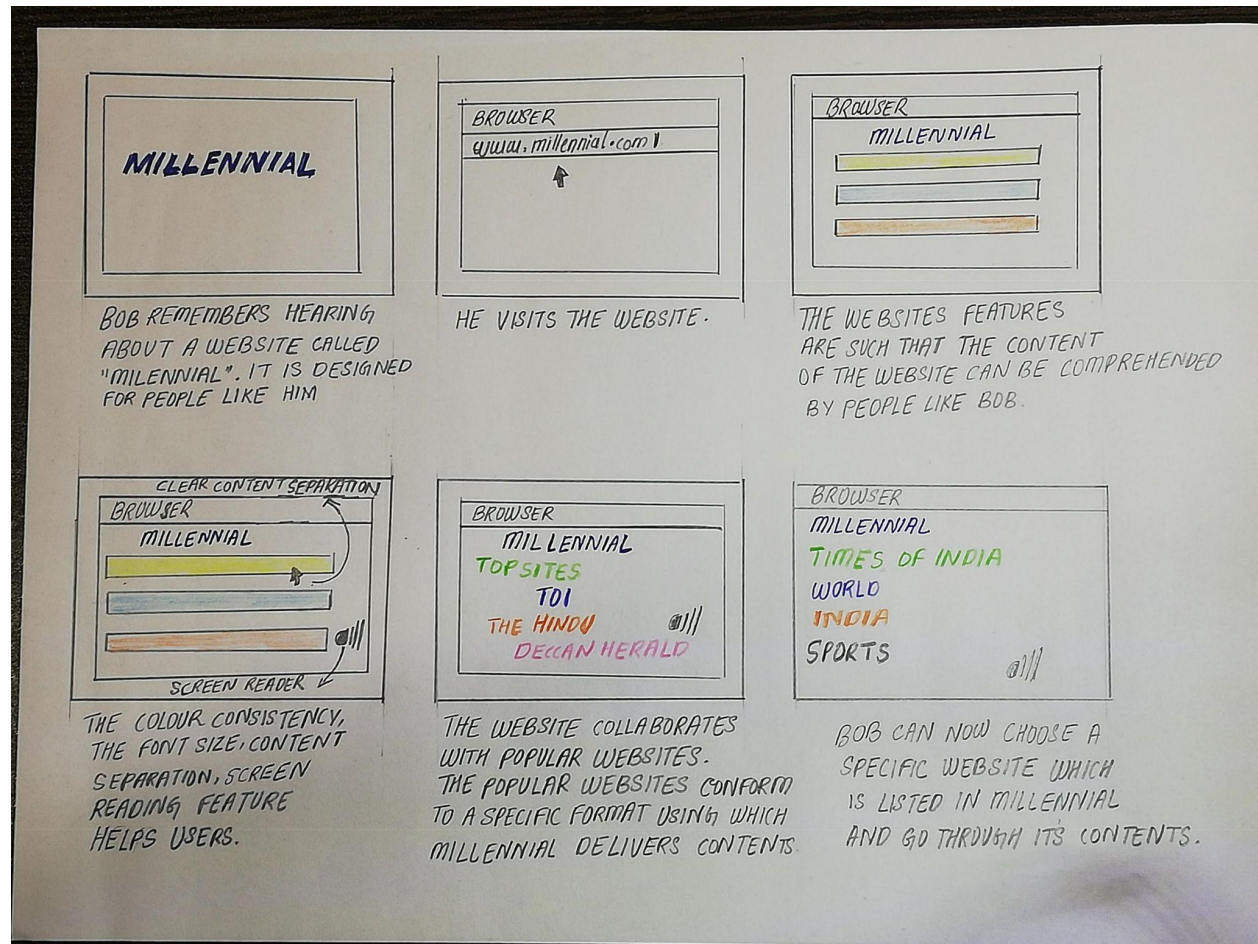 MILLENNIAL
BOB REMEMBERS HEARING
ABOUT A WEBSITE CALLED
"MILENNIAL". IT IS DESIGNED
FOR PEOPLE LIKE HIM
BROWSER
www.millennial.com
HE VISITS THE WEBSITE.
BROWSER
MILLENNIAL
THE WEBSITES FEATURES
ARE SUCH THAT THE CONTENT
OF THE WEBSITE CAN BE COMPREHENDED
BY PEOPLE LIKE BOB.
CLEAR CONTENT SEPARATION
BROWSER
MILLENNIAL
SCREEN READER
THE COLOUR CONSISTENCY,
THE FONT SIZE, CONTENT
SEPARATION, SCREEN
READING FEATURE
HELPS USERS.
BROWSER
MILLENNIAL
TOPSITES
TOI
THE HINDU
DECCAN HERALD
THE WEBSITE COLLABORATES
WITH POPULAR WEBSITES.
THE POPULAR WEBSITES CONFORM
TO A SPECIFIC FORMAT USING WHICH
MILLENNIAL DELIVERS CONTENTS
BROWSER
MILLENNIAL
TIMES OF INDIA
WORLD
INDIA
SPORTS
BOB CAN NOW CHOOSE A
SPECIFIC WEBSITE WHICH
IS LISTED IN MILLENNIAL
AND GO THROUGH IT'S CONTENTS.